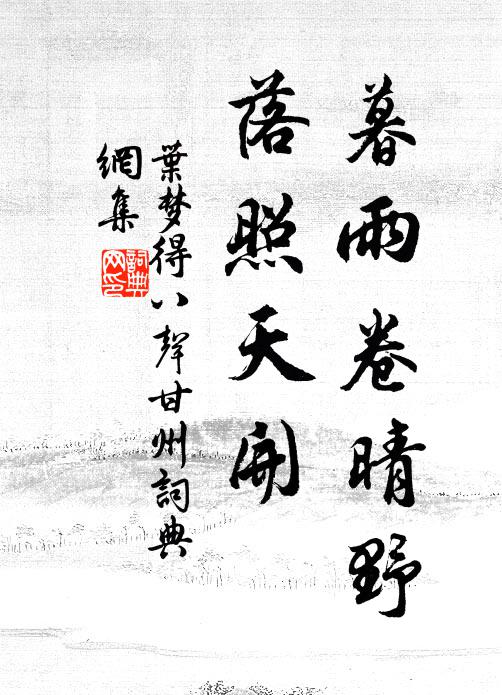 暮雨卷晴野
落照天開
葉梦得八聲甘州詞典
網集
詞典
网印